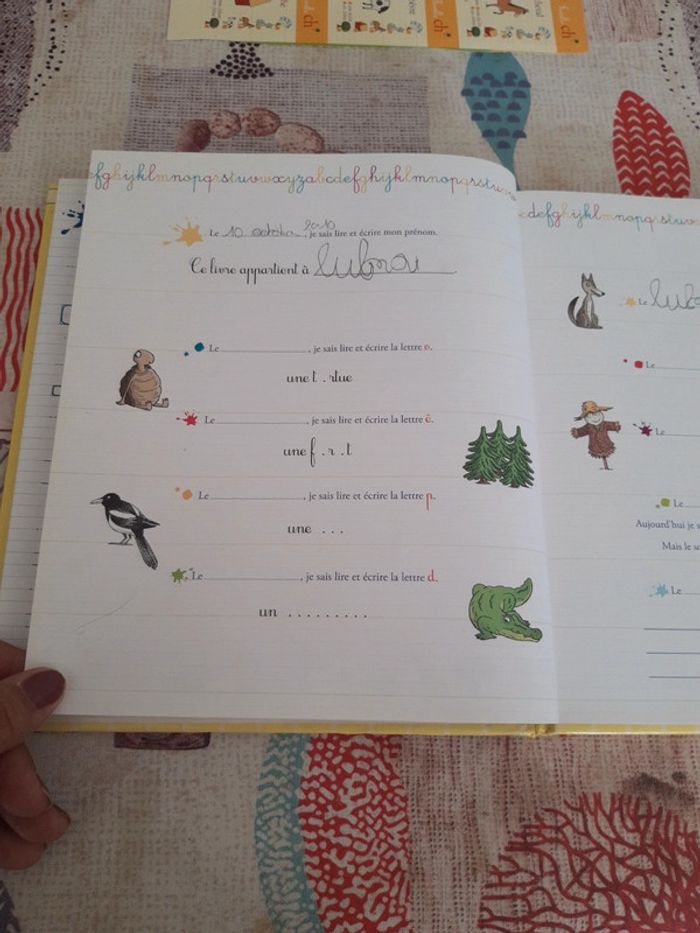 ch
ch
ch
efghijklmnopqrstuvwxyzabcdefghijklmnopqrstuvw
Le 10 octobre 2010, je sais lire et écrire mon prénom.
Ce livre appartient à lubna
Le , je sais lire et écrire la lettre o.
une t . rtue
Le , je sais lire et écrire la lettre ê.
une f . r . t
Le , je sais lire et écrire la lettre p.
une . . .
Le , je sais lire et écrire la lettre d.
un . . . . . . . . .
cdefghijklmnopqrstuv
Le lub
Le
Le
Le
Aujourd'hui je s
Mais le se
Le